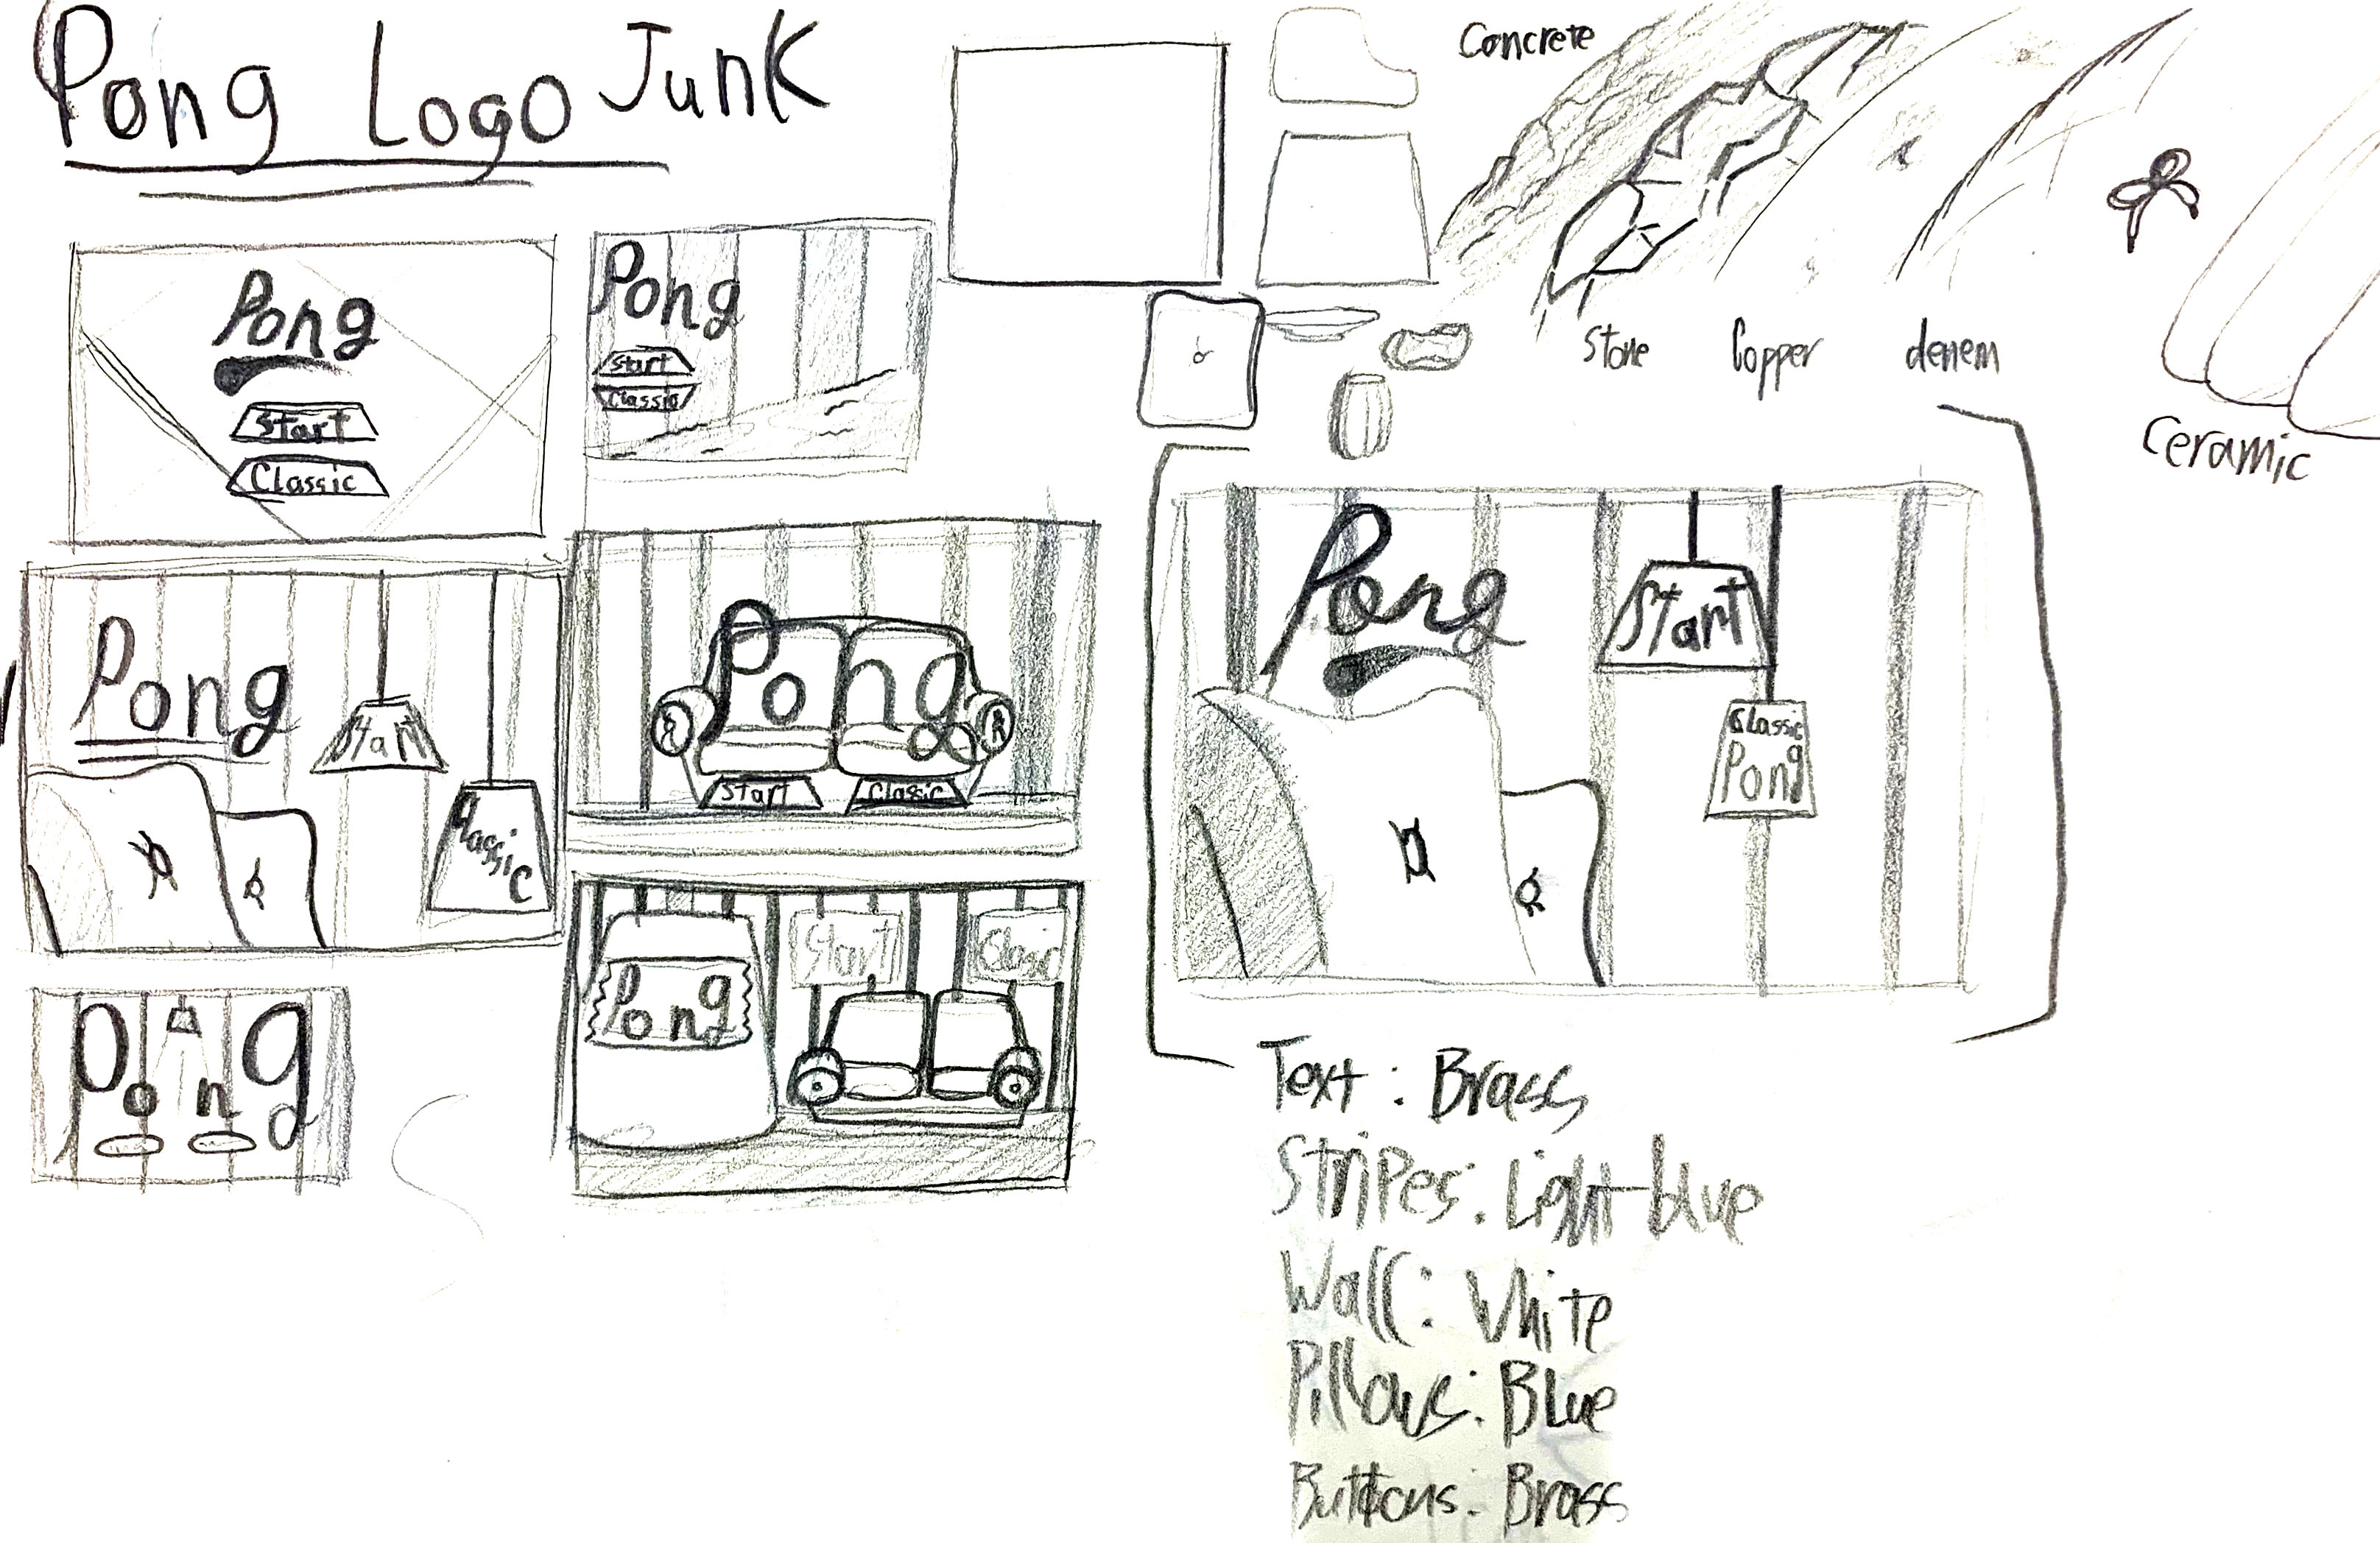 Pong Logo Junk
Concrete
Stone
Copper
denem
Ceramic
Pong
Start
Classic
Pong
Start
Classic
Pong
Start
Classic
Pong
Start
Classic
Pong
Start
Classic
Pong
Pong
Start
Classic
Pong
Text: Brass
Stripes: Light-blue
Wall: White
Pillows: Blue
Buttons: Brass